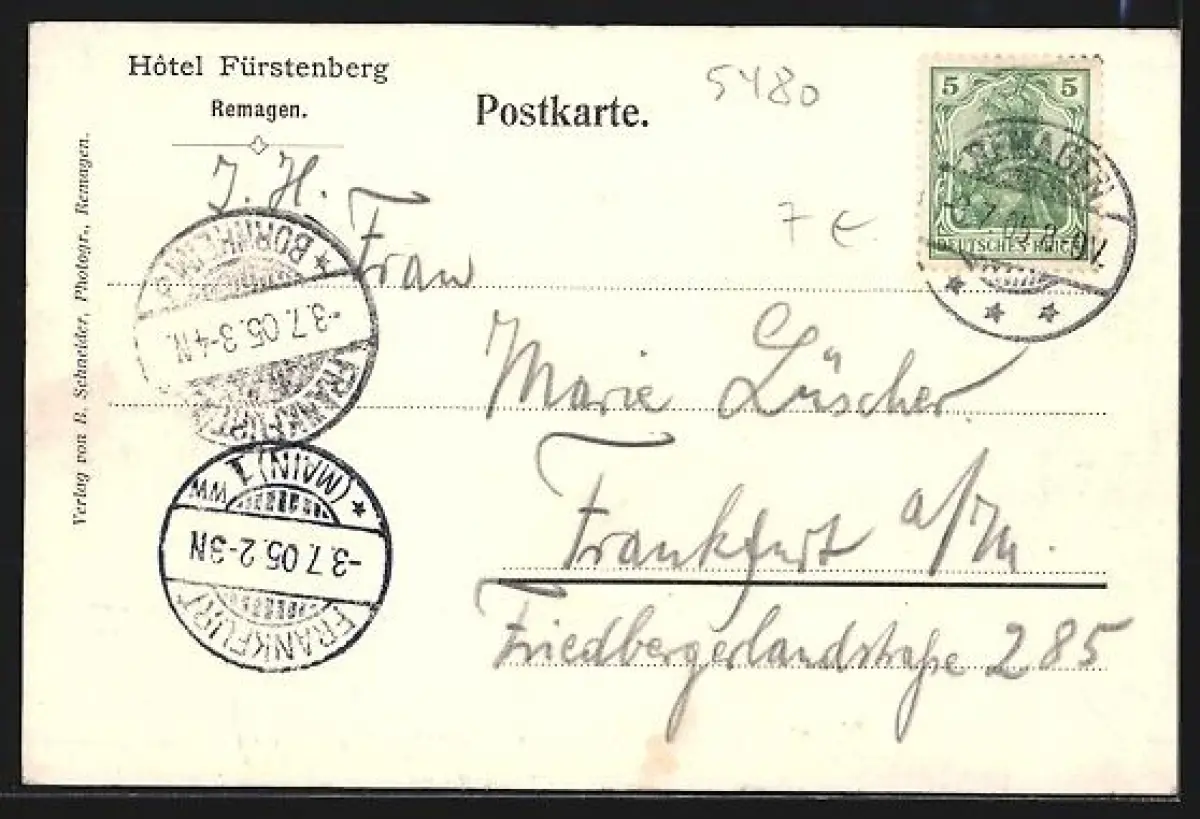 Hôtel Fürstenberg
Remagen.
Postkarte.
5480
5 5
DEUTSCHES REICH
REMAGEN
7.05.
7 €
I. H.
Frau
Marie Lüscher
Frankfurt a/M.
Friedbergerlandstraße 285
BORNHEIM
-3.7.05.3-4N.
FRANKFURT
FRANKFURT
-3.7.05.2-3N
(MAIN) 1
WW
Verlag von R. Schneider, Photogr., Remagen.